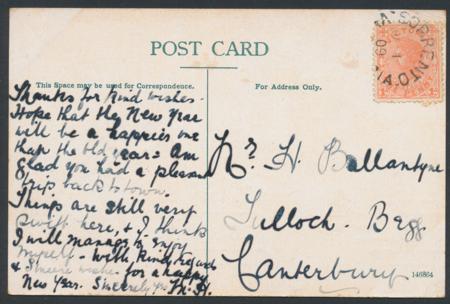 POST CARD
This Space may be used for Correspondence.
For Address Only.
SORRENTO
Thanks for kind wishes -
Hope that the New Year
will be a happier one
than the old year. Am
glad you had a pleasant
trip back to town.
Things are still very
quiet here, & I think
I will manage to enjoy
myself - with kind regards
& sincere wishes for a happy
New Year. Sincerely yrs
H. Ballantyne
Tulloch. Begg
Canterbury
146864